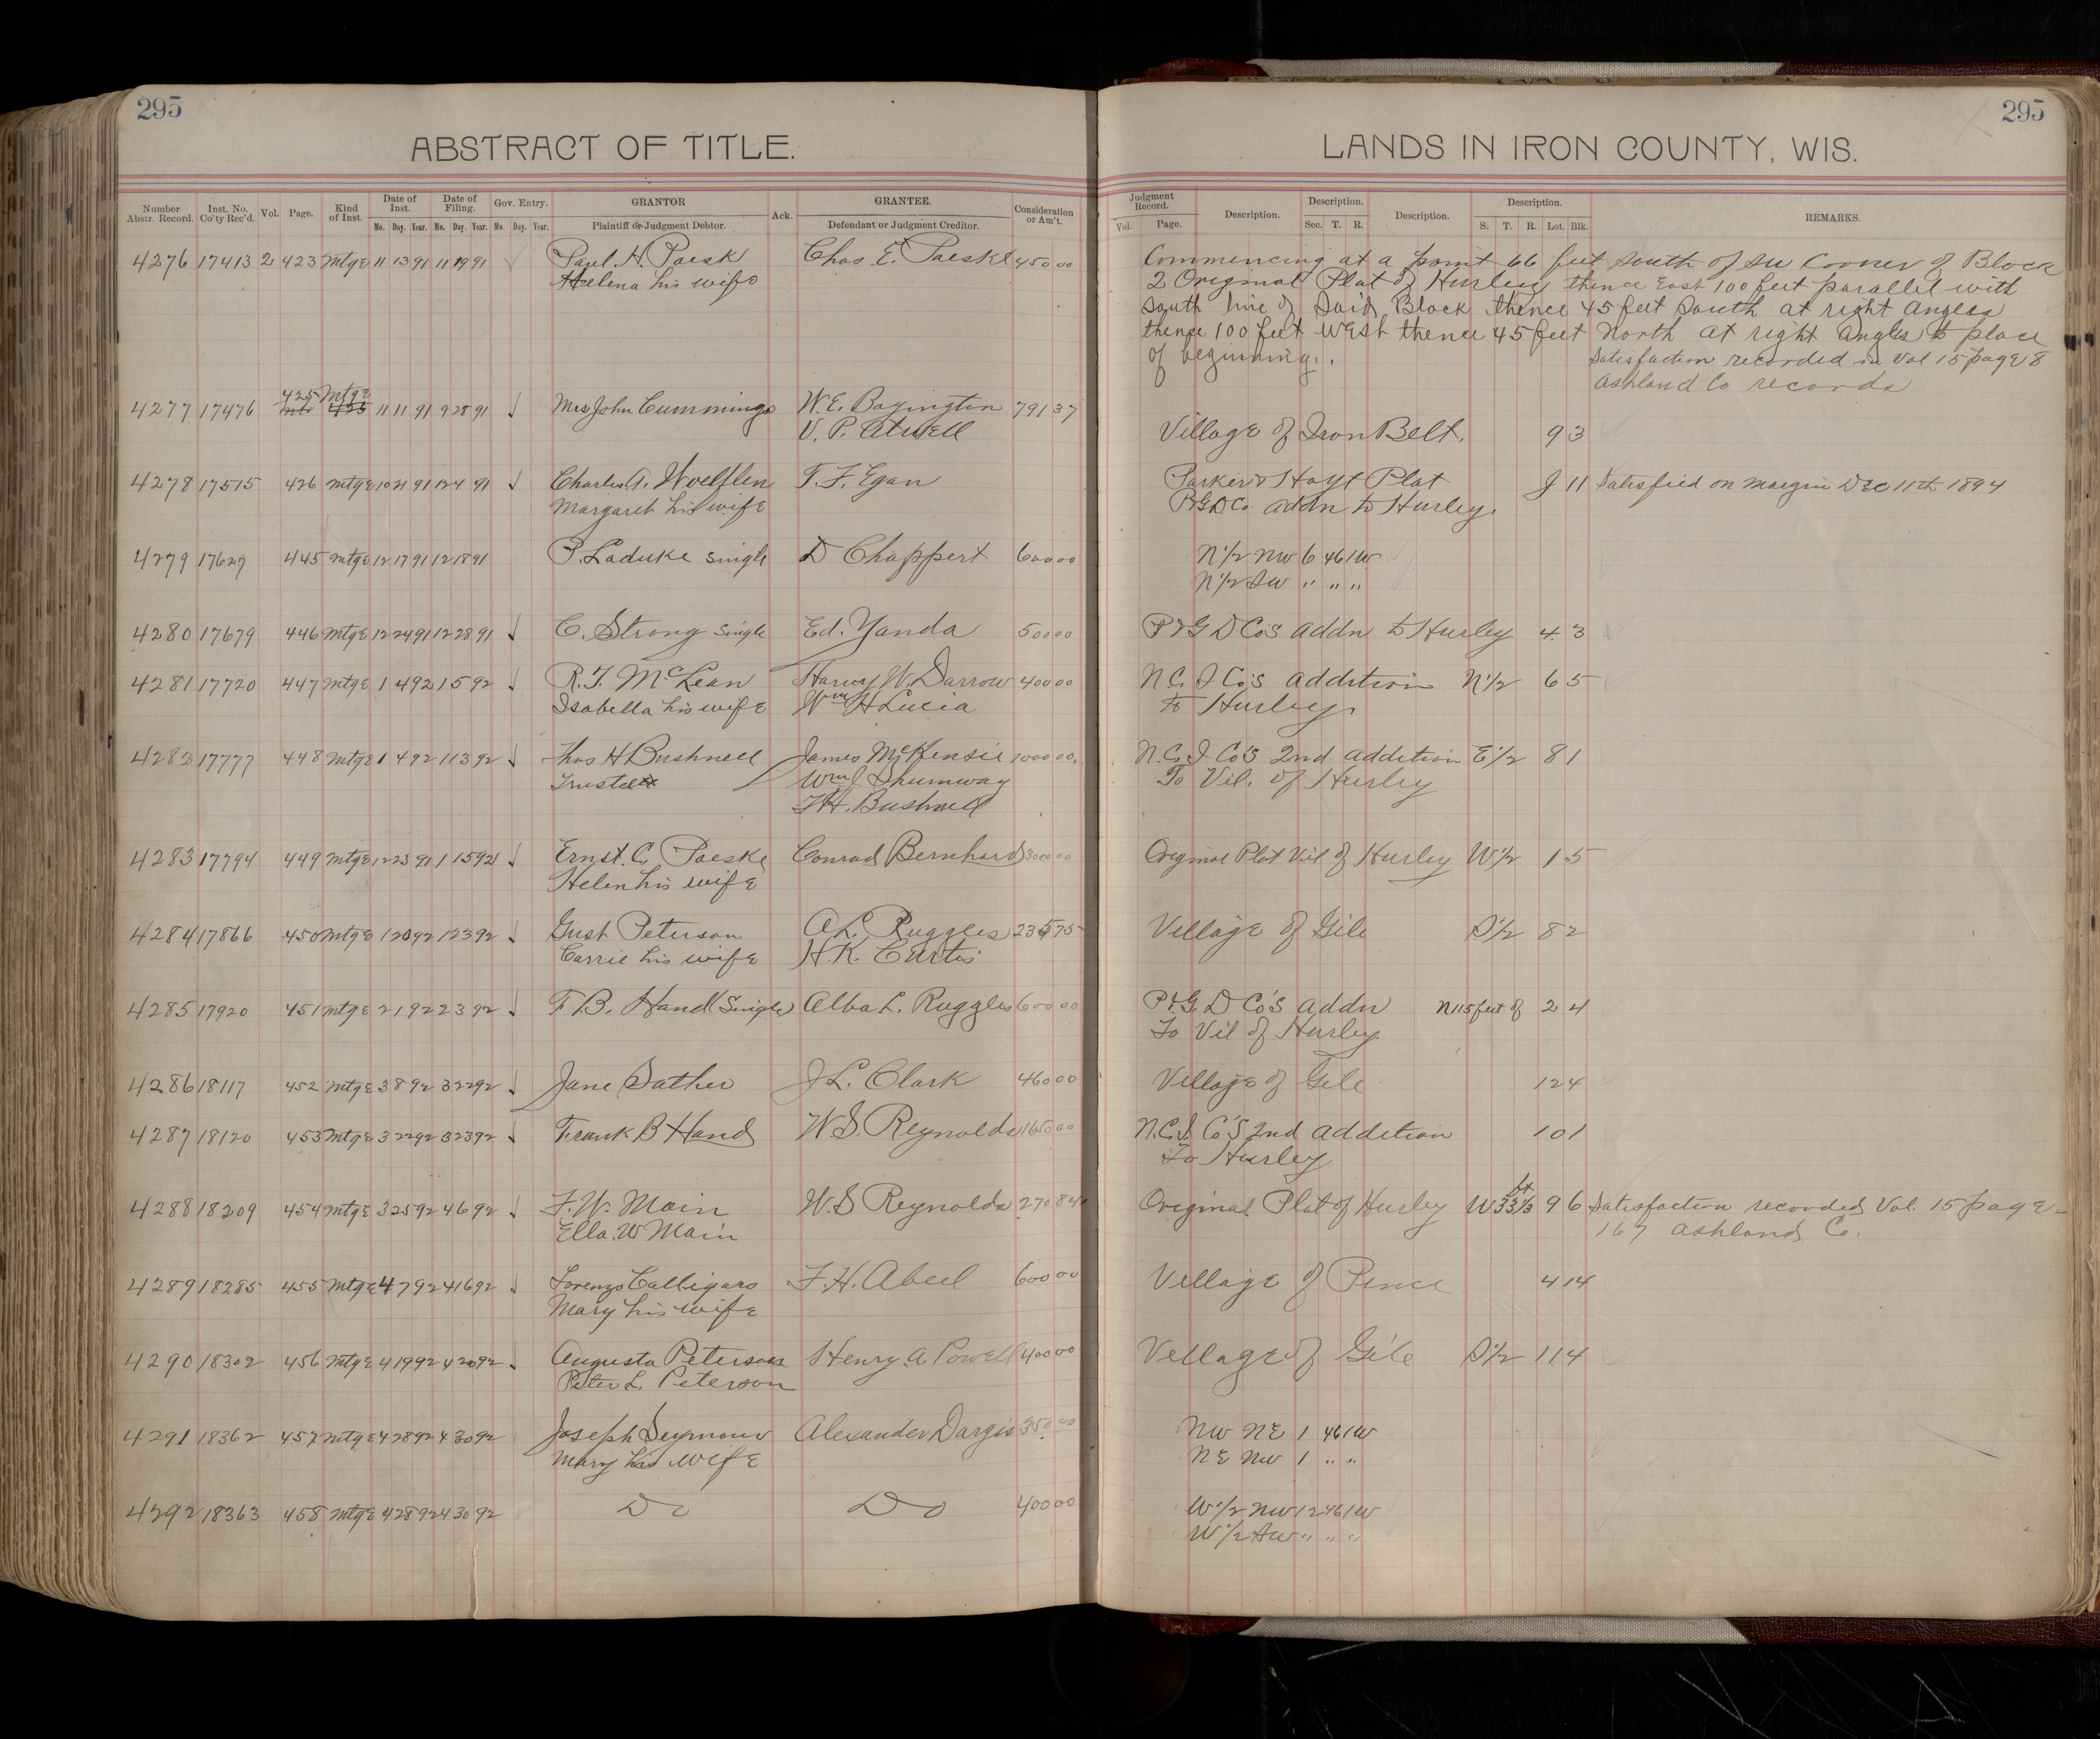 295
295
ABSTRACT OF TITLE.
LANDS IN IRON COUNTY, WIS.
Number Abstr. Record. Inst. No. Co'ty Rec'd. Vol. Page. Kind of Inst. Date of Inst. Mo. Day. Year. Date of Filing. Mo. Day. Year. Gov. Entry. Mo. Day. Year. GRANTOR Plaintiff or Judgment Debtor. Ack. GRANTEE. Defendant or Judgment Creditor. Consideration or Am't.
Judgment Record. Vol. Page. Description. Description. Sec. T. R. Description. Description. S. T. R. Lot. Blk. REMARKS.
4276 17413 2 423 Mtge 11 13 91 11 19 91 Paul. H. Paesk Chas E. Paeske 450 00 Commencing at a point 66 feet South of SW Corner of Block
Helena his wife 2 Original Plat of Hurley thence East 100 feet parallel with
South line of Said Block thence 45 feet South at right angles
thence 100 feet West thence 45 feet North at right Angles to place
of beginning. Satisfaction recorded in Vol 15 page 8
Ashland Co records
425 Mtge
4277 17476 11 11 91 9 28 91 Mrs John Cummings W. E. Boyington 791 37
V. P. Atwell Village of Iron Belt. 9 3
4278 17515 426 Mtge 10 21 91 12 4 91 Charles A. Woelflen T. F. Egan Parker & Hoyt Plat J 11 Satisfied on margin Dec 11th 1894
Margaret his wife P&GD Co. addn to Hurley.
4279 17627 445 Mtge 12 17 91 12 18 91 P. Laduke single D Chappert 600 00 N 1/2 NW 6 46 1W
N 1/2 SW " " "
4280 17679 446 Mtge 12 24 91 12 28 91 C. Strong single Ed. Yanda 500 00 P & G D Co's addn to Hurley 4 3
4281 17720 447 Mtge 1 4 92 1 5 92 R. T. McLean Harvey W. Darrow 400 00 N. C. I Co's addition N 1/2 6 5
Isabella his wife Wm H Lucia to Hurley.
4282 17777 448 Mtge 1 4 92 1 13 92 Thos H Bushnell James McKensie 1000 00 N. C. I Co's 2nd addition E 1/2 8 1
Trustee Wm J Shumway To Vil. of Hurley
T. H. Bushnell
4283 17794 449 Mtge 12 23 91 1 15 92 Ernst. C. Paeske Conrad Bernhard 300 00 Original Plat Vil of Hurley W 1/2 1 5
Helen his wife
4284 17866 450 Mtge 1 20 92 1 23 92 Gust Peterson A. L. Ruggles 235 75 Village of Gile S 1/2 8 2
Carrie his wife H. K. Curtis
4285 17920 451 Mtge 2 1 92 2 3 92 F. B. Hand (Single) Alba L. Ruggles 600 00 P & G. D Co's addn N 115 feet of 2 4
To Vil of Hurley
4286 18117 452 Mtge 3 8 92 3 22 92 Jane Sather J. L. Clark 460 00 Village of Gile 12 4
4287 18120 453 Mtge 3 22 92 3 23 92 Frank B Hand W. S. Reynolds 165 00 N. C. I. Co's 2nd addition 10 1
To Hurley
4288 18209 454 Mtge 3 25 92 4 6 92 F. W. Main W. S Reynolds 270 84 Original Plat of Hurley W 33 1/3 ft 9 6 Satisfaction recorded Vol. 15 page
Ella. W Main 167 Ashland Co.
4289 18285 455 Mtge 4 7 92 4 16 92 Lorenzo Calligaro F. H. Abeel 600 00 Village of Pence 4 14
Mary his wife
4290 18302 456 Mtge 4 19 92 4 20 92 Augusta Peterson Henry. A Powell 400 00 Village of Gile S 1/2 11 4
Peter L. Peterson
4291 18362 457 Mtge 4 28 92 4 30 92 Joseph Seymour Alexander Dargis 350 00 NW NE 1 46 1W
Mary his wife NE NW 1 " "
4292 18363 458 Mtge 4 28 92 4 30 92 Do Do 400 00 W 1/2 NW 12 46 1W
W 1/2 SW " " "